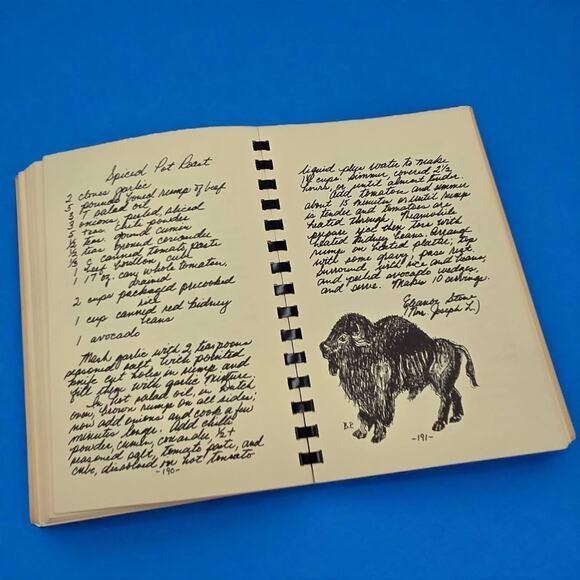 Spiced Pot Roast
2 cloves garlic
5 pounds boned rump of beef
3 T salad oil
3 onions, peeled, sliced
5 teas. chili powder
1/2 teas. ground cumin
1/2 teas. ground coriander
1/3 c canned tomato paste
1 beef bouillon cube
1 17 oz. can whole tomatoes,
drained
2 cups packaged precooked
rice
1 cup canned red kidney
beans
1 avocado
Mash garlic with 2 teaspoons
seasoned salt. With pointed
knife cut holes in rump and
fill them with garlic mixture.
In hot salad oil, in Dutch
oven, brown rump on all sides;
now add onions and cook a few
minutes longer. Add chili
powder, cumin, coriander, 1/2 t
seasoned salt, tomato paste, and
cube, dissolved in hot tomato
-190-
liquid plus water to make
1 1/2 cups. Simmer, covered 2 1/2
hours, or until almost tender.
Add tomatoes and simmer
about 15 minutes or until rump
is tender and tomatoes are
heated through. Meanwhile
prepare rice then toss with
heated kidney beans. Arrange
rump on heated platter; top
with some gravy; pass rest.
Surround with rice and beans,
and peeled avocado wedges,
and serve. Makes 10 servings.
Eleanor Stone
(Mrs. Joseph L.)
B.P.
-191-